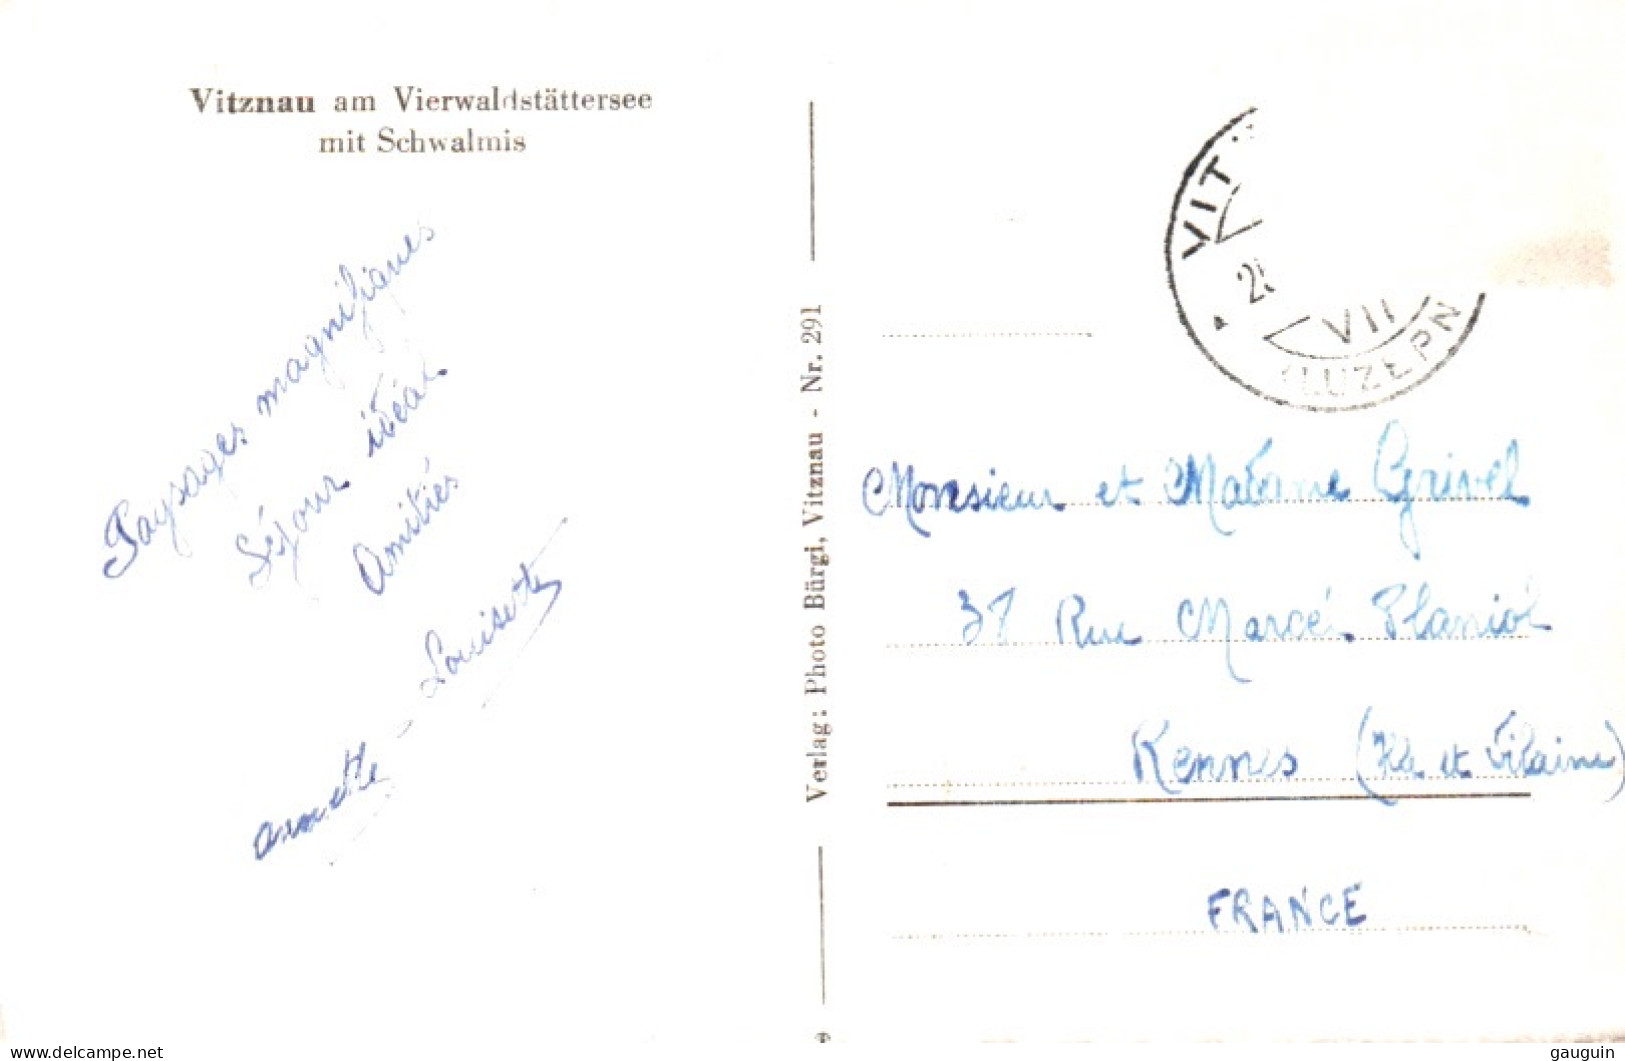 Vitznau am Vierwaldstättersee
mit Schwalmis
Paysages magnifiques
Séjour idéal
Amitiés
Louisette
Verlag: Photo Bürgi, Vitznau - Nr. 291
VIT
VII
(LUZERN
Monsieur et Madame Grivel
37 Rue Marcel Planiol
Rennes (Ile et Vilaine)
FRANCE
www.delcampe.net
gauguin